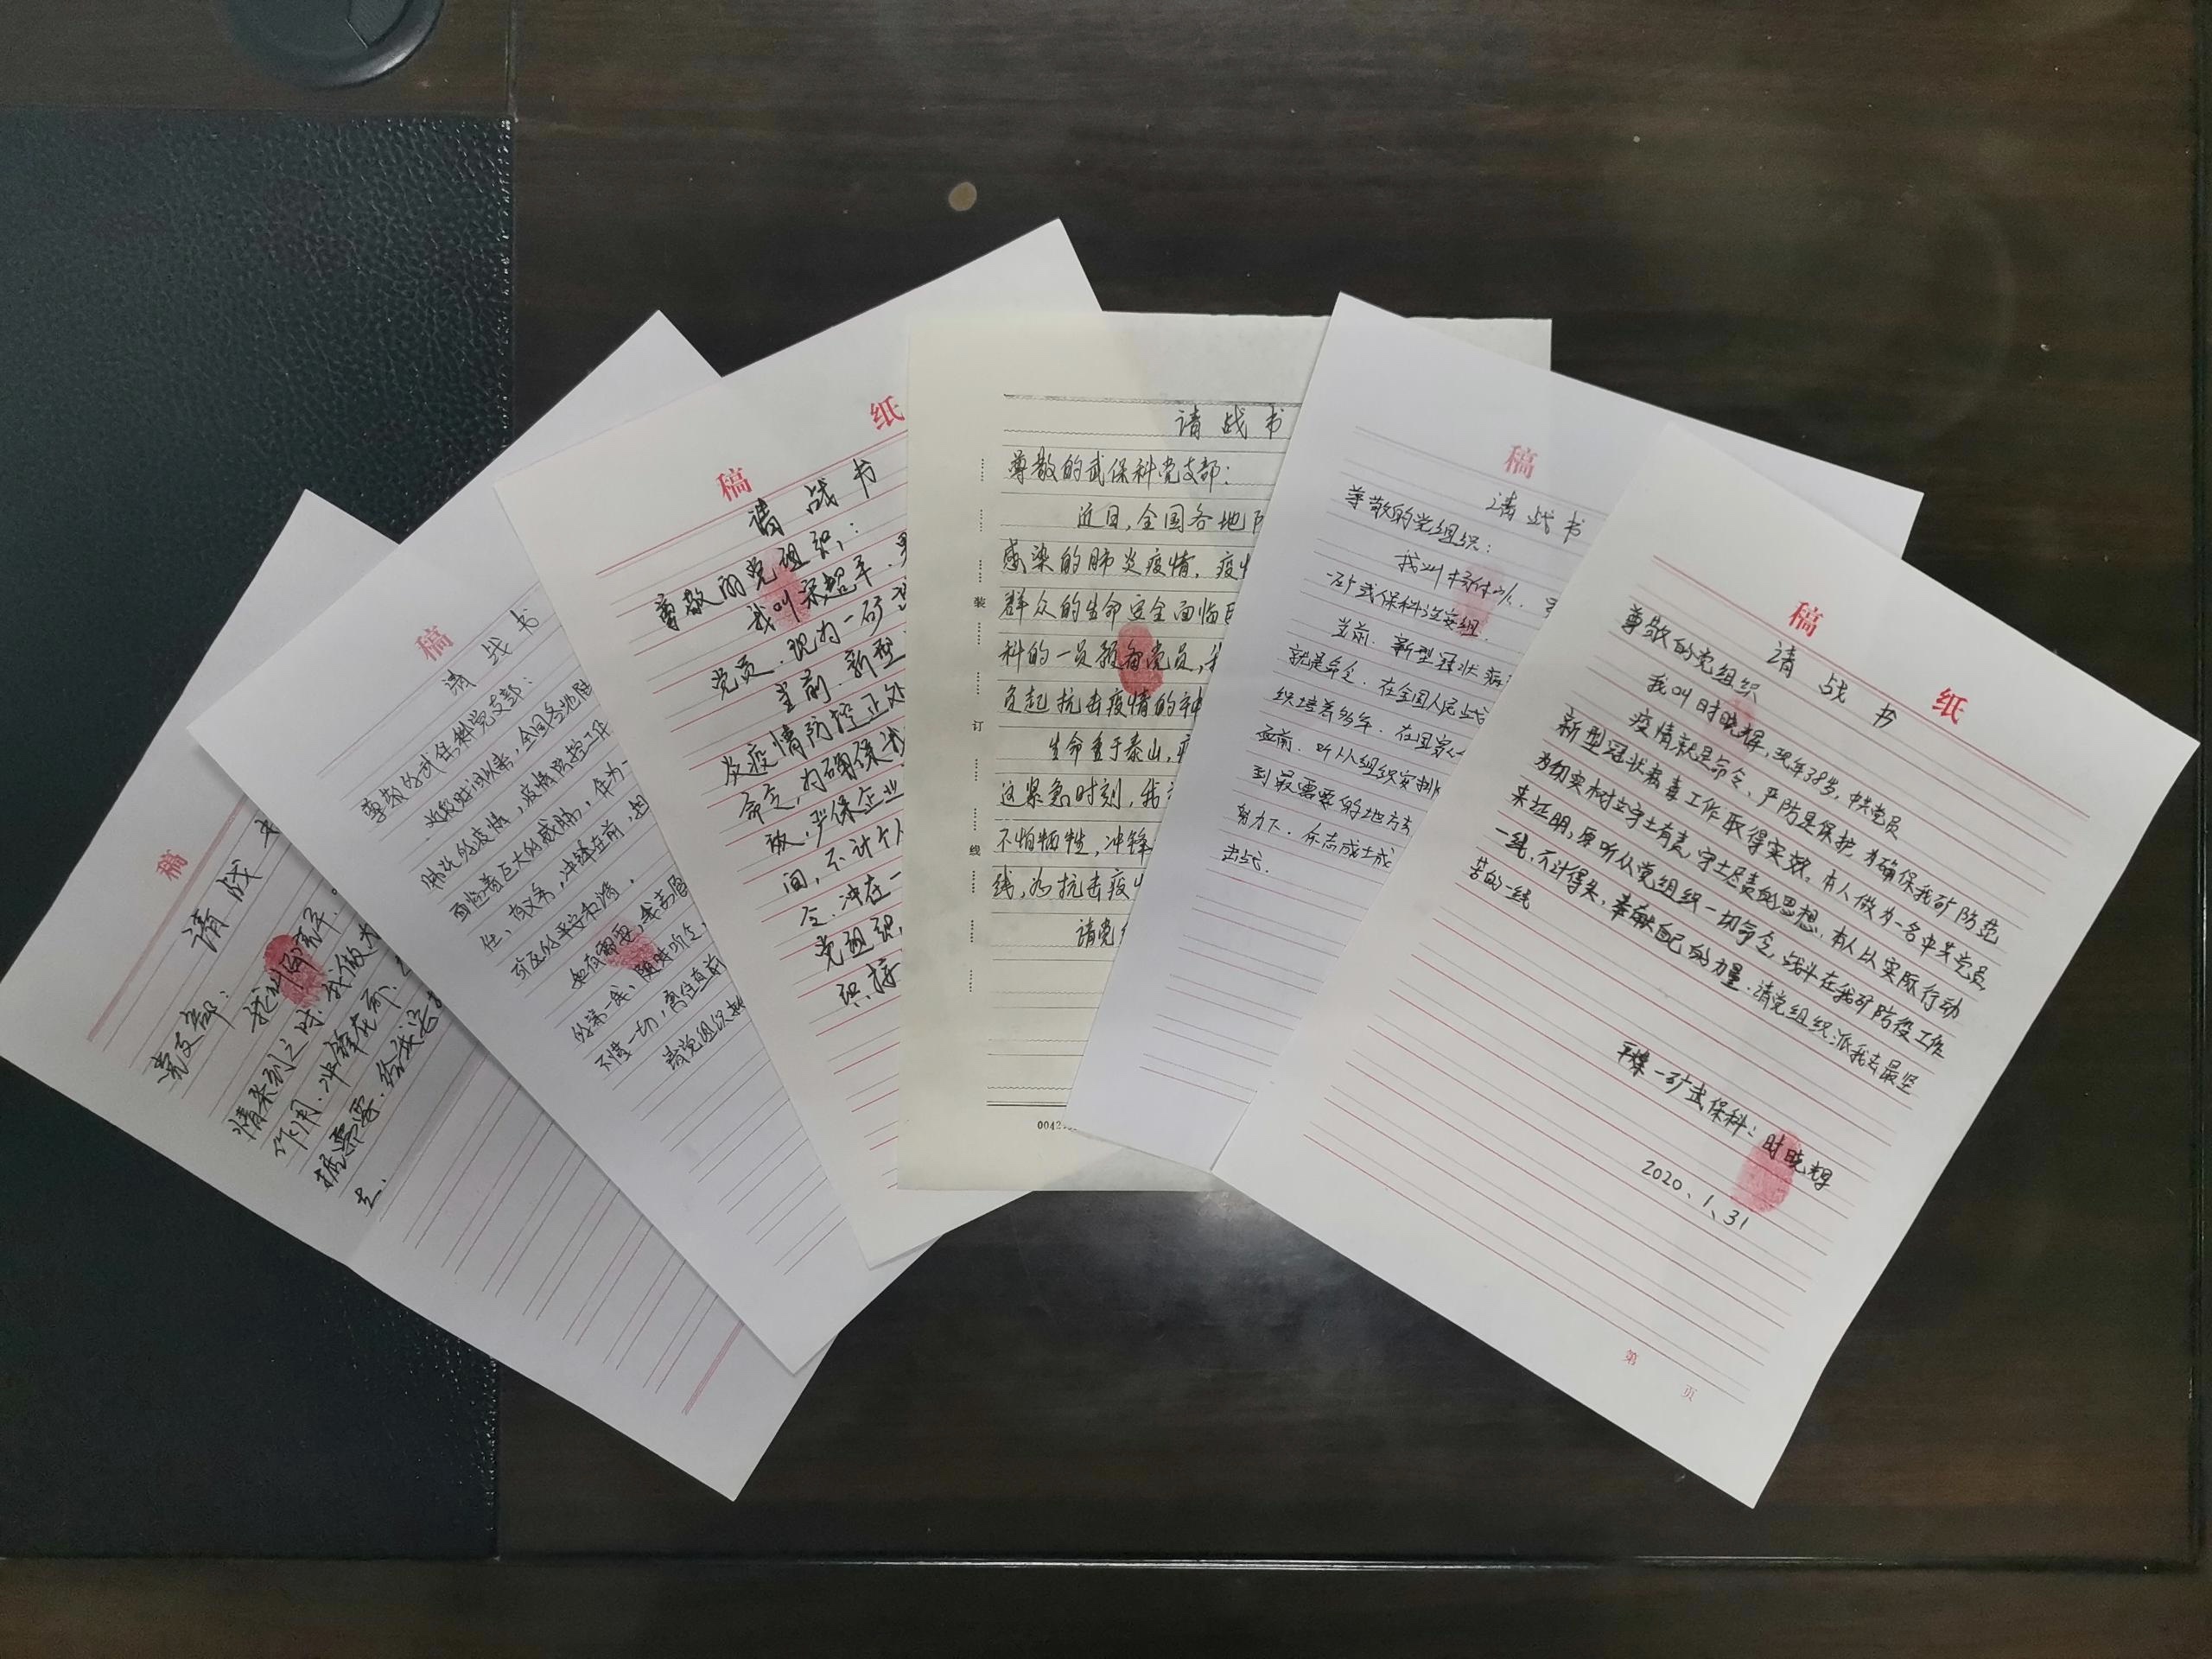 稿
请战
党支部：
情来到之时，我做为
作用，冲锋在前，
据需要，给我安
上.
稿
请战书
尊敬的武保科党支部：
近段时间以来，全国各地陆
肺炎的疫情，疫情防控工作
面临着巨大的威胁，作为一
任、有义务，冲锋在前，担
矿区的平安和谐，
如有需要，我志愿
的第一线，随时听令，
不惜一切，勇往直前
请党组织
稿 纸
请战书
尊敬的党组织：
我叫宋超平，男
党员，现为一矿武
当前，新型
炎疫情防控正处
命令，为确保
散，严保企业
间，不计个人
令，冲在一
党组织，
织接
请战书
尊敬的武保科党支部：
近日，全国各地
感染的肺炎疫情，疫情
群众的生命安全面临巨
科的一员预备党员，我
负起抗击疫情的神
生命重于泰山，疫
这紧急时刻，我
不怕牺牲，冲锋
线，为抗击疫
请党
装
订
线
稿
请战书
尊敬的党组织：
我叫
一矿武保科治安组.
当前，新型冠状病
就是命令，在全国人民
织培养多年，在国家
面前，听从组织安排
到最需要的地方
努力下，众志成城
出战.
稿 纸
请战书
尊敬的党组织
我叫时晓辉，现年38岁，中共党员
疫情就是命令，严防是保护，为确保我矿防范
新型冠状病毒工作取得实效。本人做为一名中共党员
为切实树立守土有责，守土尽责的思想，本人以实际行动
来证明，要听从党组织一切命令，战斗在我矿防役工作
一线，不计得失，奉献自己的力量，请党组织派我去最坚
苦的一线
平煤一矿武保科：时晓辉
2020、1、31
第 页